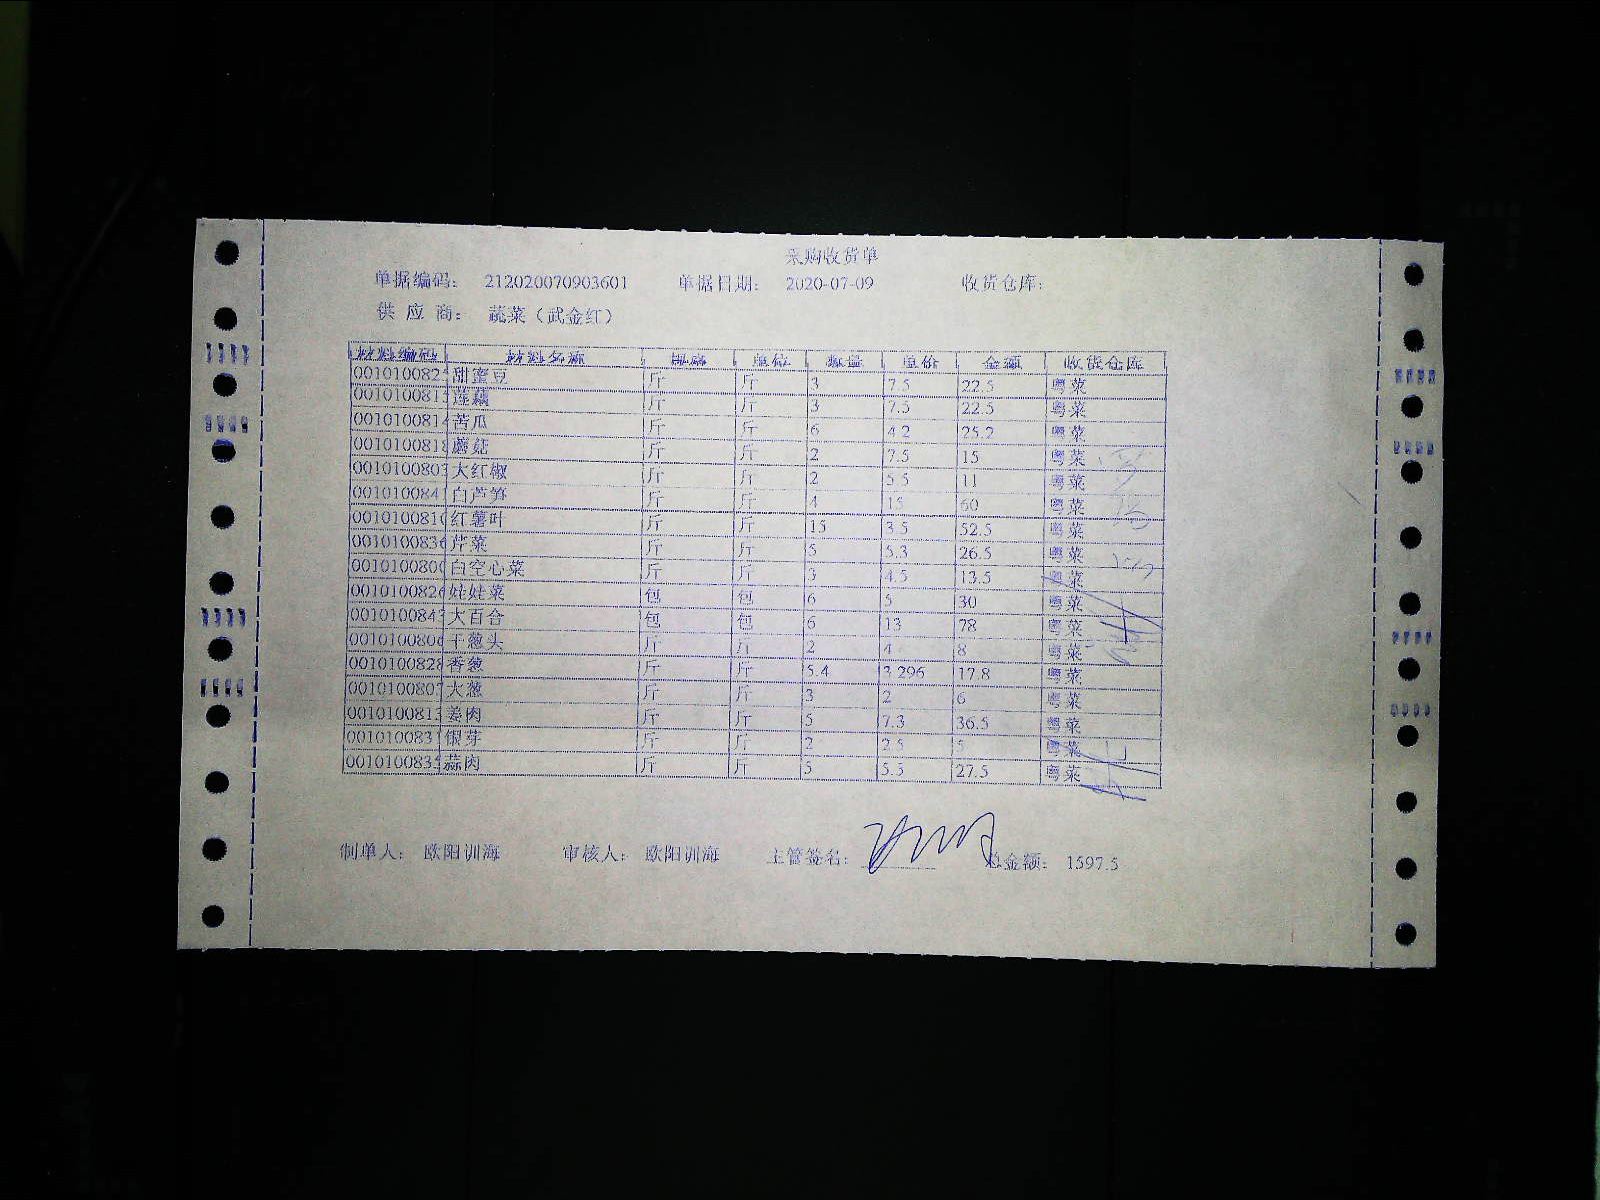 采购收货单
单据编码： 212020070903601 单据日期： 2020-07-09 收货仓库：
供 应 商： 蔬菜（武金红）
材料编码 材料名称 规格 单位 数量 单价 金额 收货仓库
001010082 甜蜜豆 斤 斤 3 7.5 22.5 粤菜
001010081 莲藕 斤 斤 3 7.5 22.5 粤菜
001010081 苦瓜 斤 斤 6 4.2 25.2 粤菜
001010081 蘑菇 斤 斤 2 7.5 15 粤菜
001010080 大红椒 斤 斤 2 5.5 11 粤菜
001010084 白芦笋 斤 斤 4 15 60 粤菜
001010081 红薯叶 斤 斤 15 3.5 52.5 粤菜
001010083 芹菜 斤 斤 5 5.3 26.5 粤菜
001010080 白空心菜 斤 斤 3 4.5 13.5 粤菜
001010082 娃娃菜 包 包 6 5 30 粤菜
001010084 大百合 包 包 6 13 78 粤菜
001010080 干葱头 斤 斤 2 4 8 粤菜
001010082 香葱 斤 斤 5.4 3.296 17.8 粤菜
001010080 大葱 斤 斤 3 2 6 粤菜
001010081 姜肉 斤 斤 5 7.3 36.5 粤菜
001010083 银芽 斤 斤 2 2.5 5 粤菜
001010083 蒜肉 斤 斤 5 5.5 27.5 粤菜
制单人： 欧阳训海 审核人： 欧阳训海 主管签名： 总金额： 1597.5